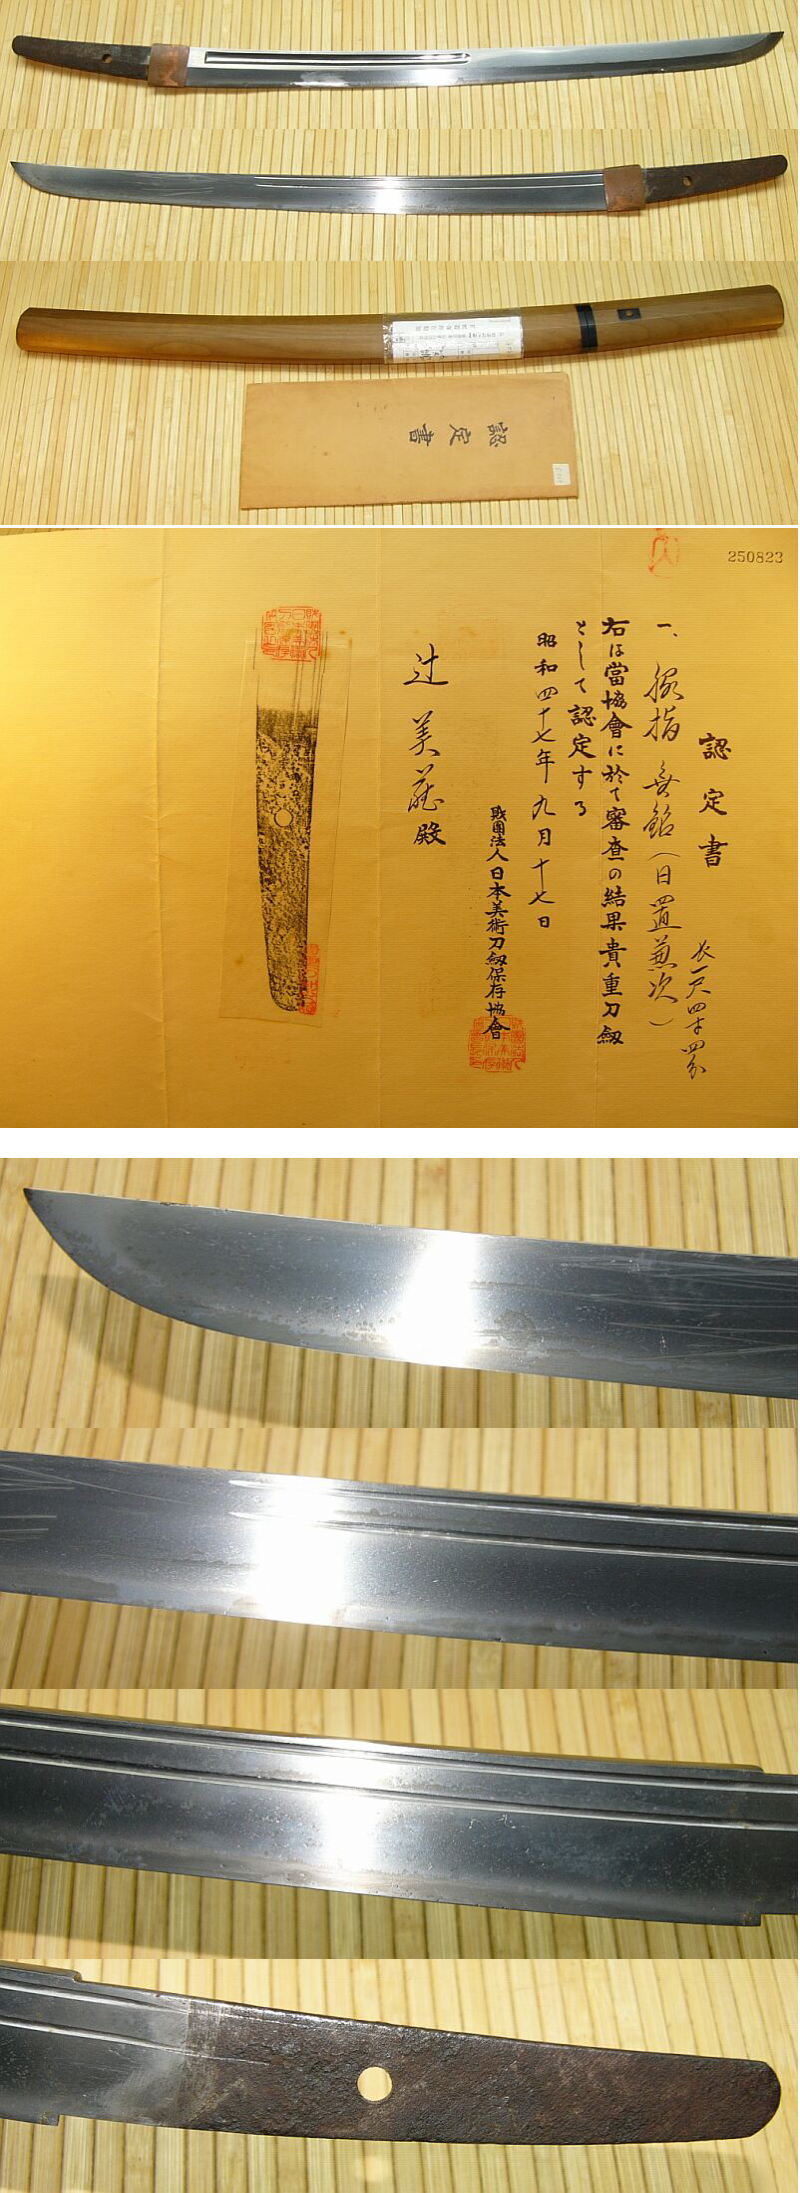 認定書
250823
認定書
一、脇指 無銘（日置兼次）
長一尺四寸四分
右は當協會に於て審査の結果貴重刀剱
として認定する
昭和四十七年九月十七日
財團法人日本美術刀剱保存協會
辻 美蔵殿